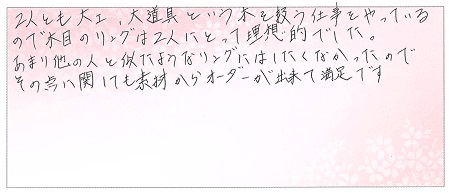 2人とも大工、大道具という木を扱う仕事をやっている
ので木目のリングは2人にとって理想的でした。
あまり他の人と似たようなリングにはしたくなかったので
その点に関しても素材からオーダーが出来て満足です